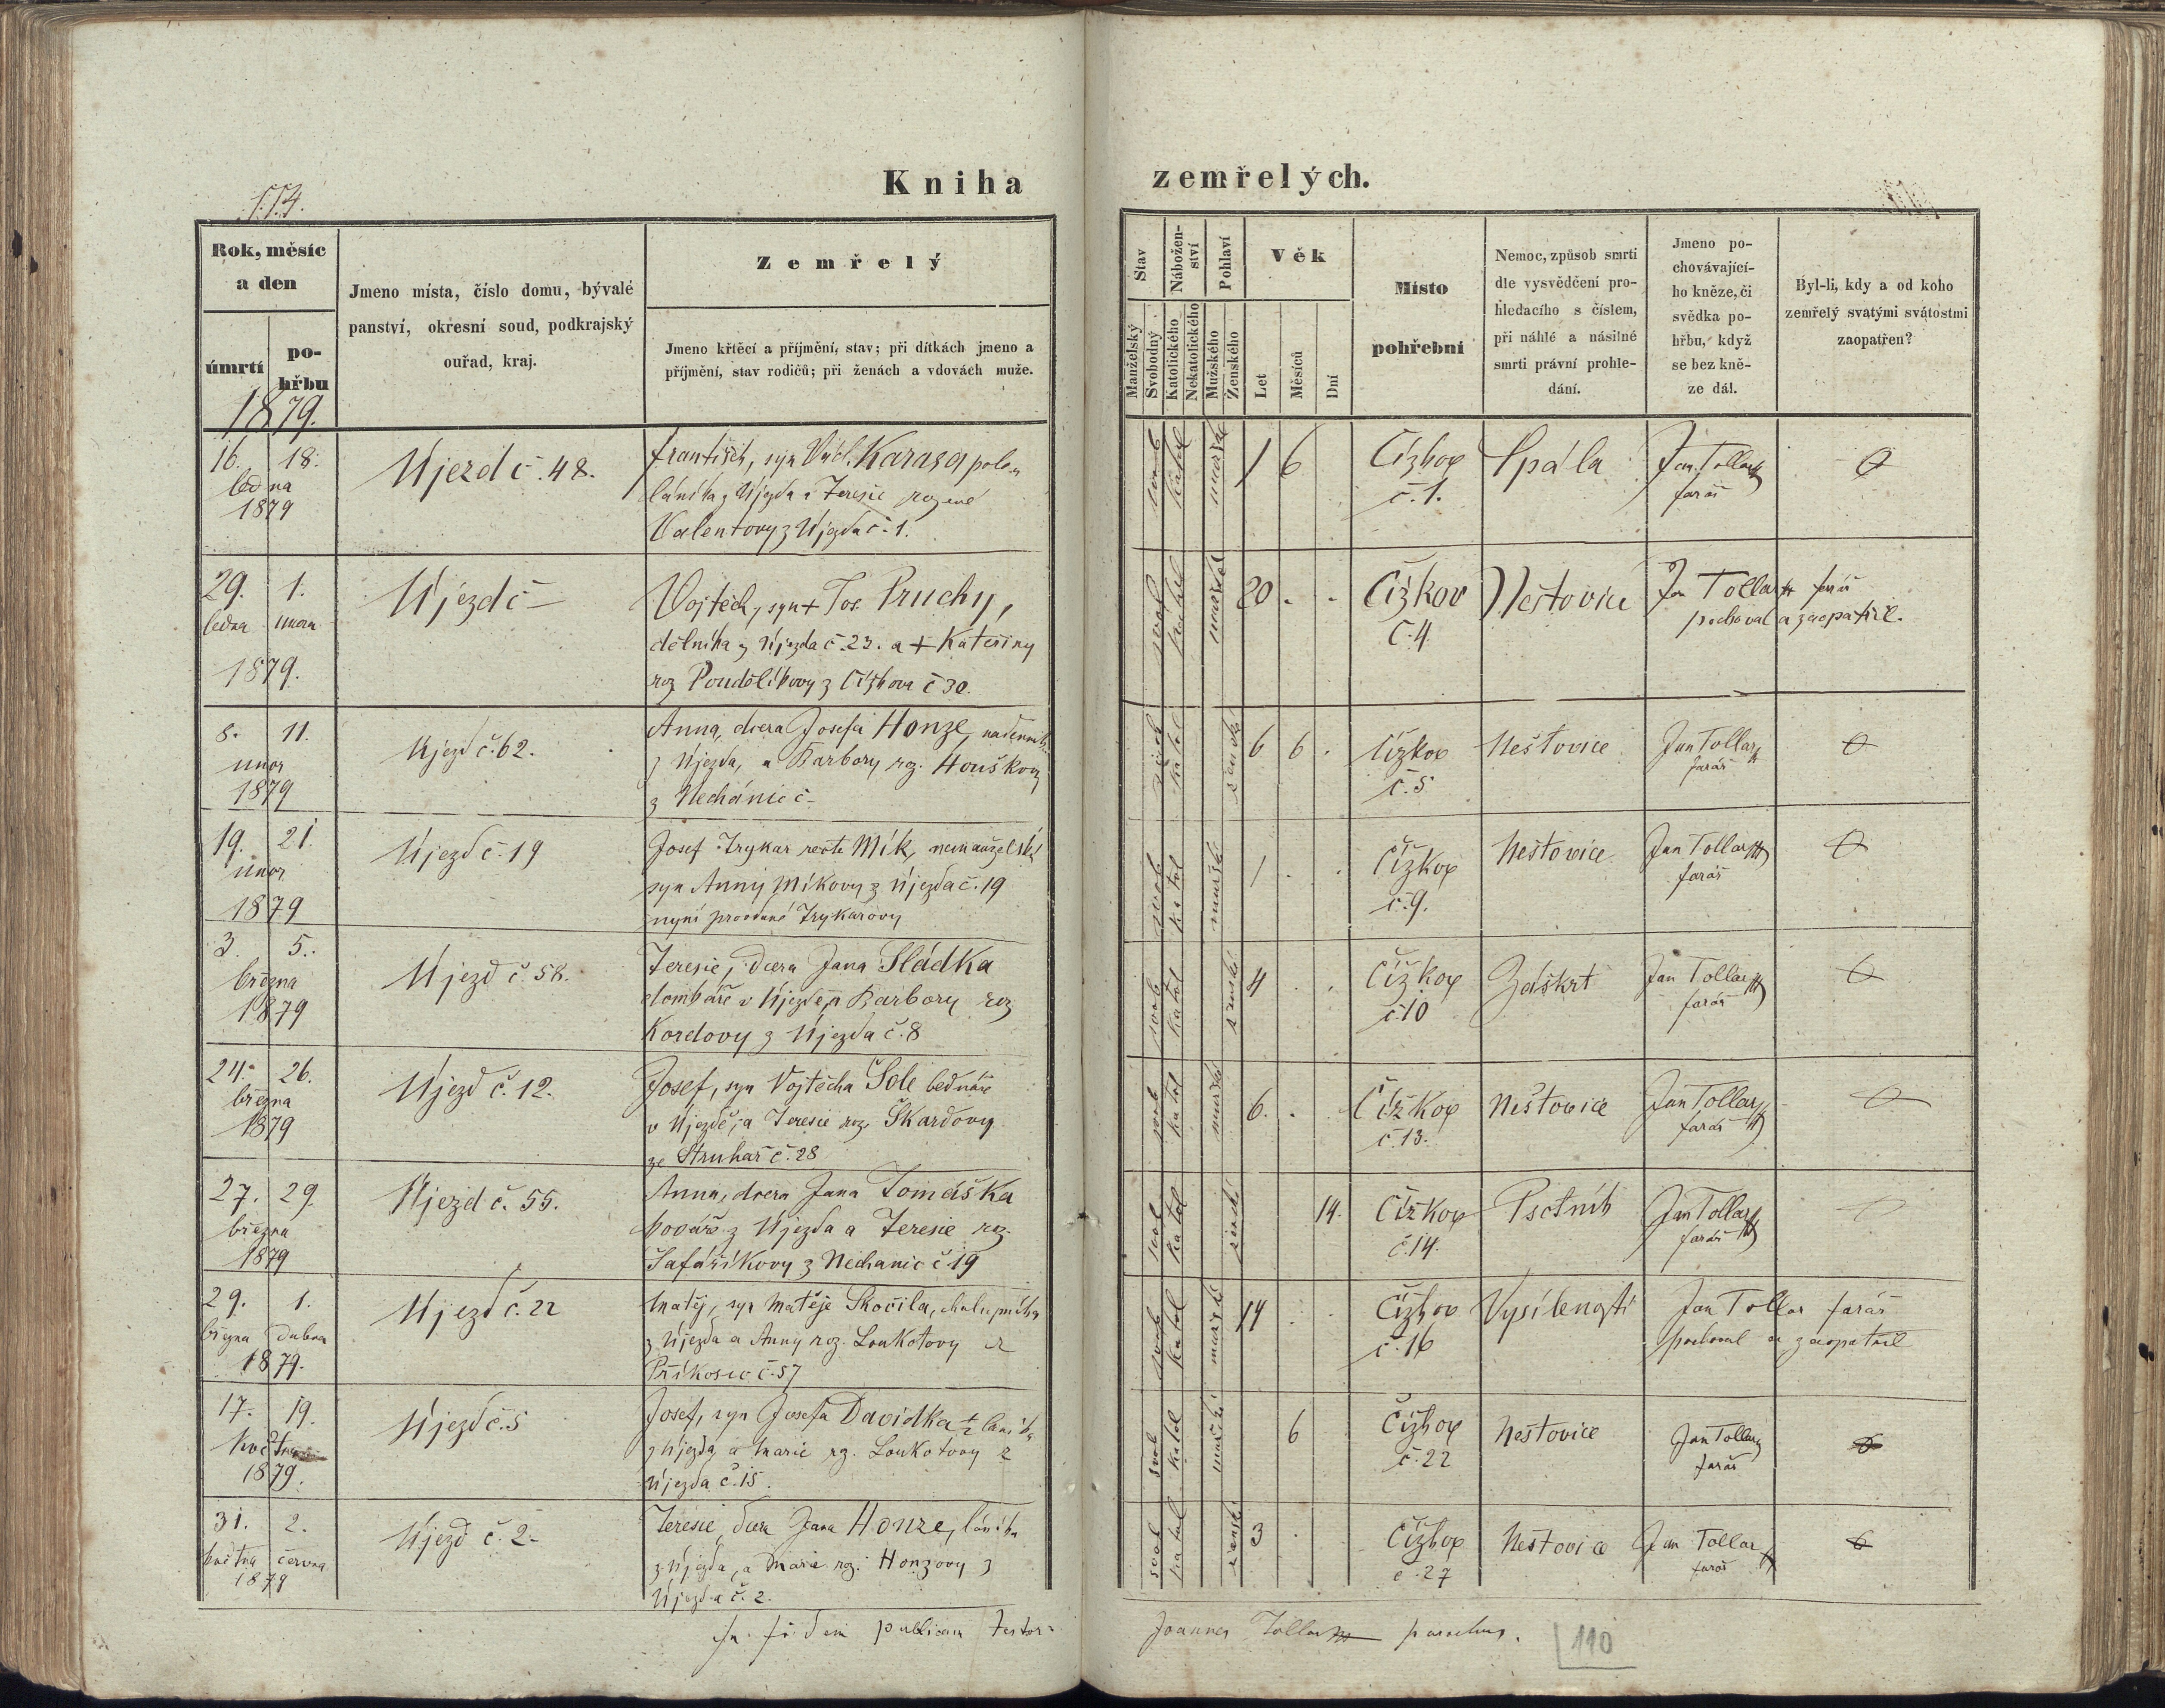 114.
Kniha zemřelých.
Rok, měsíc a den
úmrtí
pohřbu
Jmeno místa, číslo domu, bývalé
panství, okresní soud, podkrajský
ouřad, kraj.
Zemřelý
Jmeno křtěcí a příjmění, stav; při dítkách jmeno a
příjmění, stav rodičů; při ženách a vdovách muže.
Stav
Manželský
Svobodný
Nábožen-
ství
Katolického
Nekatolického
Pohlaví
Mužského
Ženského
Věk
Let
Měsíců
Dní
Místo
pohřební
Nemoc, způsob smrti
dle vysvědčení pro-
hledacího s číslem,
při náhlé a násilné
smrti právní prohle-
dání.
Jmeno po-
chovávající-
ho kněze, či
svědka po-
hřbu, když
se bez kně-
ze dál.
Byl-li, kdy a od koho
zemřelý svatými svátostmi
zaopatřen?
1879.
16. 18.
ledna
1879
Újezd č. 48.
František, syn Václ. Karasa polou
láníka z Újezda a Teresie rozené
Valentovy z Újezda č. 1.
svob katol mužské
1 6
Čížkov
č. 1.
Spála
Jan Tollar
farář
29. 1.
ledna února
1879.
Újezd č –
Vojtěch, syn + Jos. Pruchy,
dělníka z Újezda č. 23. a + Kateřiny
roz Poudělíkovy z Čížkova č 30.
svob katol mužské
20 - -
Čížkov
č. 4.
Neštovice
Jan Tollar farář
pochoval a zaopatřil.
8. 11.
únor
1879
Újezd č. 62.
Anna, dcera Josefa Honze, nádenník
z Újezda, a Barbory roz. Houškovy
z Nechánic č –
svob katol ženské
6 6 .
Čížkov
č. 5
Neštovice
Jan Tollar
farář
19. 21.
únor
1879
Újezd č. 19
Josef Trykar recte Mík, nemanželský
syn Anny Míkovy z Újezda č. 19
nyní provdané Trykarovy
svob katol mužské
1 . .
Čížkov
č. 9.
Neštovice
Jan Tollar
farář
3. 5.
března
1879
Újezd č. 58.
Teresie, dcera Jana Sládka
domkáře v Újezdě, a Barbory roz
Kordovy z Újezda č. 8
svob katol ženské
4 . .
Čížkov
č. 10
Záškrt
Jan Tollar
farář
24. 26.
března
1879
Újezd č. 12.
Josef, syn Vojtěcha Šole bednáře
v Újezdě, a Teresie roz. Škardovy
ze Struhař č. 28
svob katol mužské
6. .
Čížkov
č. 13.
Neštovice
Jan Tollar
farář
27. 29.
března
1879
Újezd č. 55.
Anna, dcera Jana Tomáška
kováře z Újezda a Teresie roz.
Šafaříkovy z Nechanic č 19
svob katol ženské
14.
Čížkov
č. 14.
Psotník
Jan Tollar
farář
29. 1.
března dubna
1879.
Újezd č. 22
Matěj, syn Matěje Skočila, chalupníka
z Újezda a Anny roz. Loukotovy z
Příkosic č. 57
svob katol mužské
14 . .
Čížkov
č. 16
Vysílenosti
Jan Tollar farář
pochoval a zaopatřil
17. 19.
května
1879.
Újezd č. 5
Josef, syn Josefa Davídka ½ láníka
z Újezda a Marie roz. Loukotovy z
Újezda č. 15.
svob katol mužské
6
Čížkov
č. 22
Neštovice
Jan Tollar
farář
31. 2.
května června
1879
Újezd č. 2.
Teresie, dcera Jana Honze, láníka
z Újezda, a Marie roz. Honzovy z
Újezda č. 2.
svob katol ženské
3 .
Čížkov
č. 27
Neštovice
Jan Tollar
farář
In fidem publicam testor:
Joannes Tollar parochus.
110